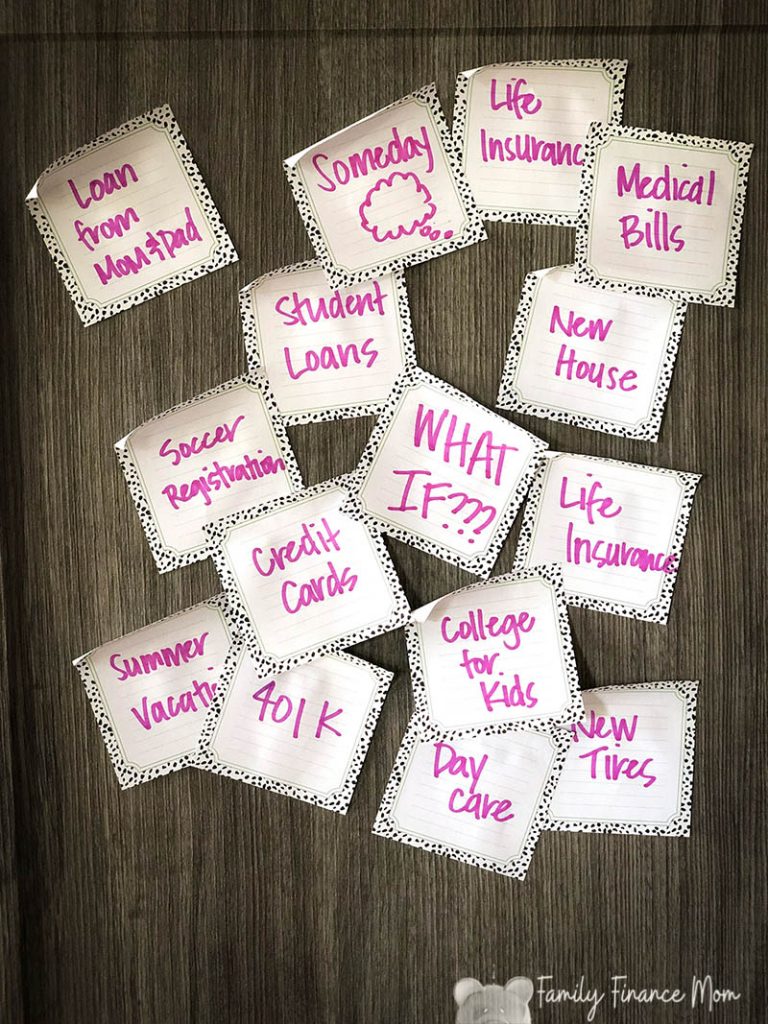 Life
Insuranc
Someday
Medical
Bills
Loan
from
Mom & Dad
Student
Loans
New
House
WHAT
IF???
Soccer
Registration
Life
Insurance
Credit
Cards
College
for
Kids
Summer
Vacati
401K
New
Tires
Day
care
Family Finance Mom